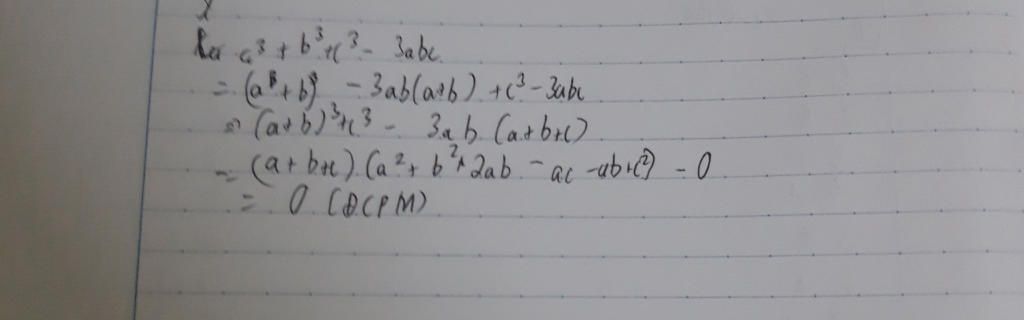 a³ + b³ + c³ - 3abc
= (a + b)³ - 3ab(a+b) + c³ - 3abc
= (a+b)³ + c³ - 3ab.(a+b+c)
= (a+b+c).(a² + b² + 2ab - ac - ab + c²) - 0
= 0 (ĐCPM)